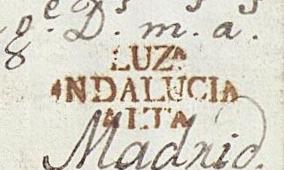 g.e D.s m.s a.s
LUZA
ANDALUCIA
ALTA
Madrid.